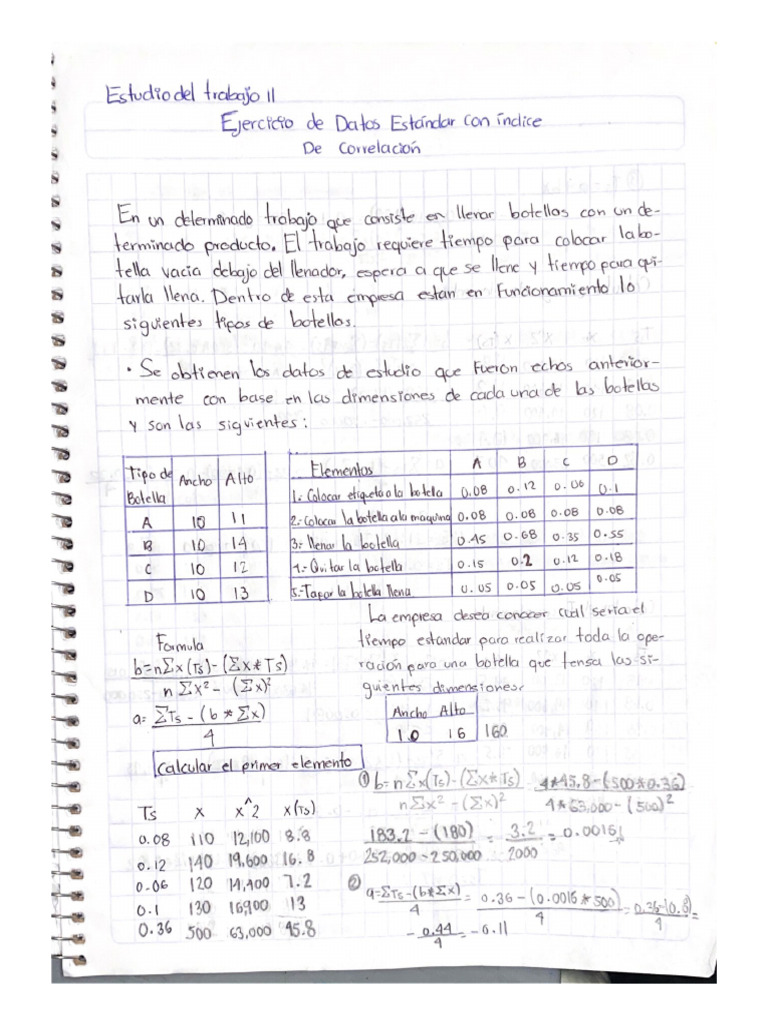 Estudio del trabajo II
Ejercicio de Datos Estándar con índice
De Correlación
En un determinado trabajo que consiste en llenar botellas con un de-
terminado producto. El trabajo requiere tiempo para colocar la bo-
tella vacía debajo del llenador, espera a que se llene y tiempo para qui-
tarla llena. Dentro de esta empresa estan en Funcionamiento lo
siguientes tipos de botellas.
• Se obtienen los datos de estudio que Fueron echos anterior-
mente con base en las dimensiones de cada una de las botellas
y son las siguientes:
Tipo de Botella Ancho Alto
A 10 11
B 10 14
C 10 12
D 10 13
Elementos A B C D
1.- Colocar etiqueta a la botella 0.08 0.12 0.06 0.1
2.- Colocar la botella a la maquina 0.08 0.08 0.08 0.08
3.- llenar la botella 0.45 0.68 0.35 0.55
4.- Quitar la botella 0.15 0.2 0.12 0.18
5.- Tapar la botella llena 0.05 0.05 0.05 0.05
La empresa desea conocer cual seria el
tiempo estandar para realizar toda la ope-
ración para una botella que tensa las si-
guientes dimensiones.
Ancho Alto
10 16 160
Formula
b=n∑x(Ts)-(∑x*Ts)
n∑x²-(∑x)²
a=∑Ts-(b*∑x)
4
Calcular el primer elemento
Ts x x^2 x(Ts)
0.08 110 12,100 8.8
0.12 140 19,600 16.8
0.06 120 14,400 7.2
0.1 130 16,900 13
0.36 500 63,000 45.8
① b=n∑x(Ts)-(∑x*Ts) 4*45.8-(500*0.36)
n∑x²-(∑x)² 4*63,000-(500)²
183.2-(180) = 3.2 = 0.0016
252,000-250,000 2000
② a=∑Ts-(b*∑x) = 0.36-(0.0016*500) = 0.36-(0.8) =
4 4 4
-0.44 = -0.11
4